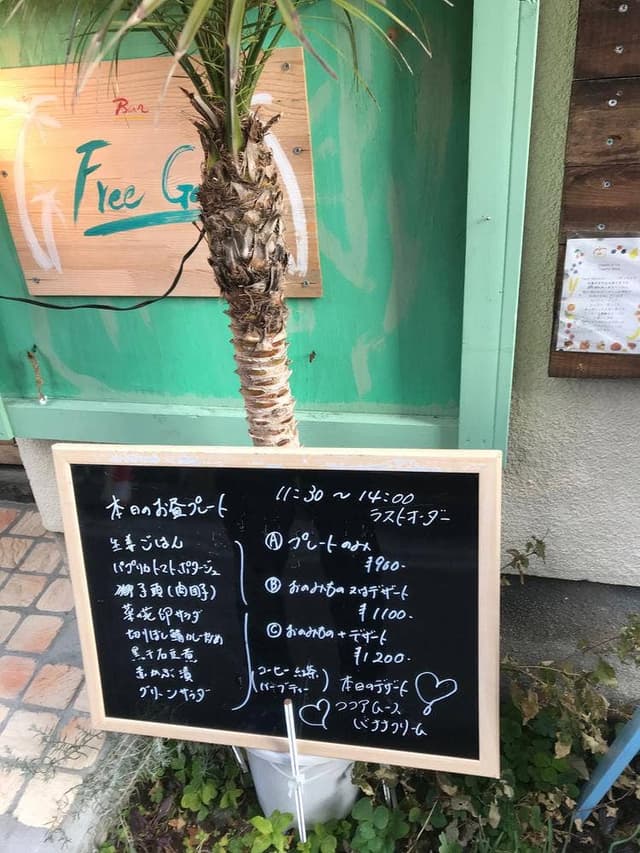 Bar
Free G
本日のお昼プレート
生姜ごはん
パプリカトマトポタージュ
獅子頭(肉団子)
菜の花卵サラダ
切りぼし鯖カレー炒め
黒千石豆煮
赤かぶ漬
グリーンサラダ
11:30〜14:00
ラストオーダー
Ⓐ プレートのみ
¥900-
Ⓑ おのみもの又はデザート
¥1100-
Ⓒ おのみもの+デザート
¥1200-
コーヒー 紅茶
ハーブティー
本日のデザート
ココアムース
バナナクリーム